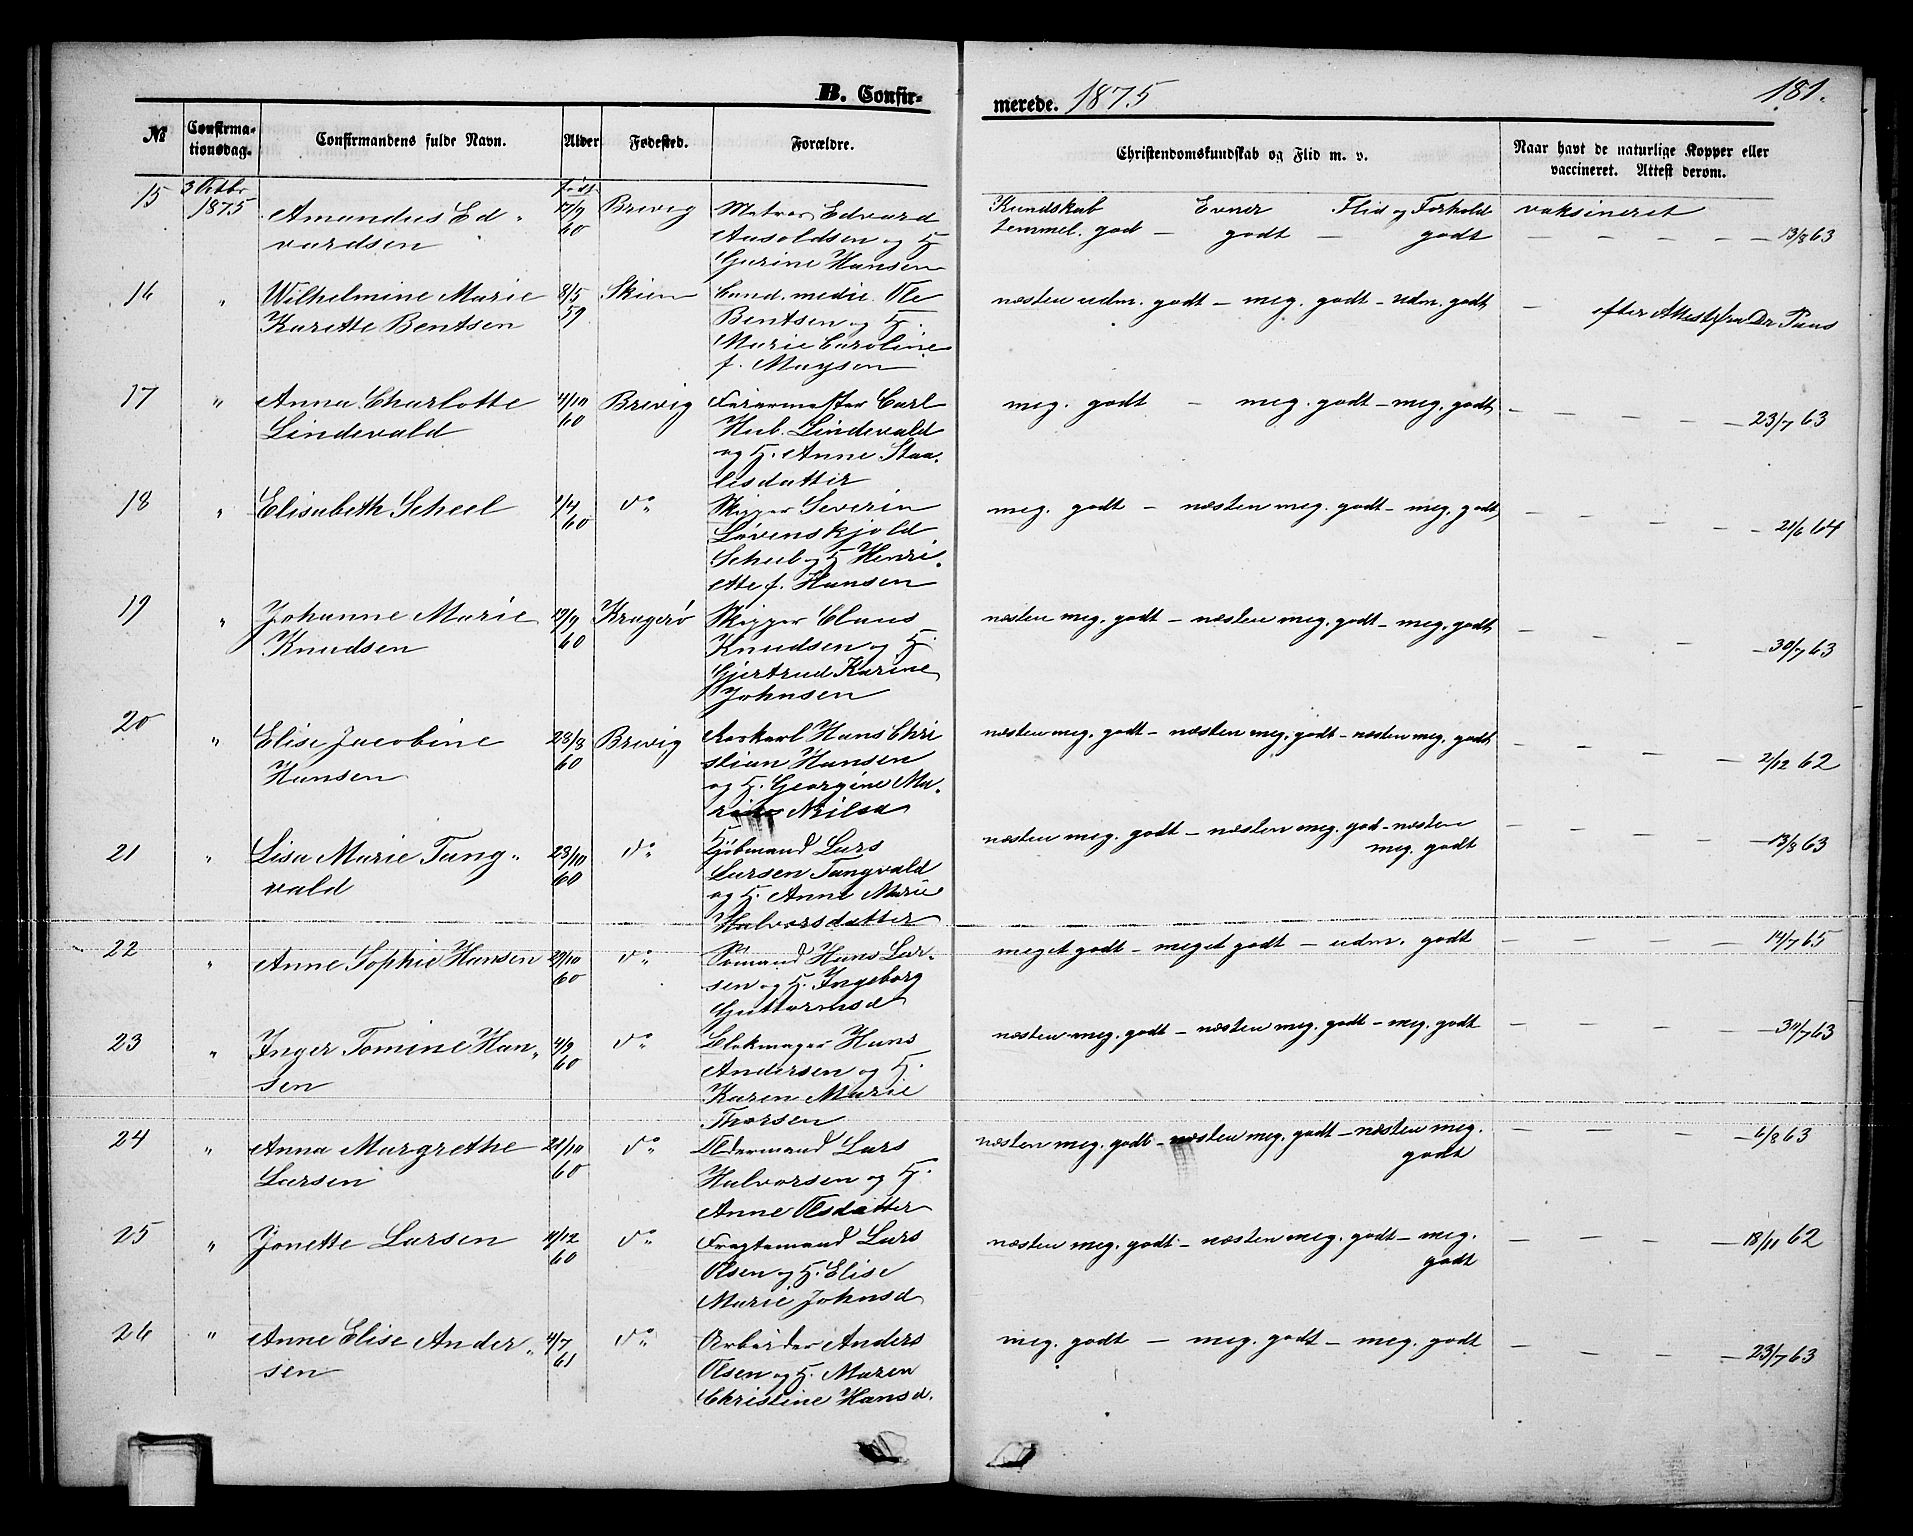 B. Confir-
merede. 1875
181.
№
Confirma-
tionsdag.
Confirmandens fulde Navn.
Alder
Fødested.
Forældre.
Christendomskundskab og Flid m. v.
Naar havt de naturlige Kopper eller
vaccineret. Attest derom.
15 3 Octbr 1875 Amandus Ed-
vardsen
født 17/9 60 Brevig
Matros Edvard
Aasoldsen og H
Gurine Hansen
Kundskab Evner Flid og Forhold
temmel. god — godt — godt
vaksineret
— — — — — 13/8 63
16 " Wilhelmine Marie
Karette Bentsen
8/5 59 Skien
Cand. medic. Ole
Bentsen og H.
Marie Caroline
f. Maysen
næsten udm. godt — meg. godt — udm. godt
— efter Attest fra Dr Paus
17 " Anna Charlotte
Lindevald
4/10 60 Brevig
Carl
Hub. Lindevald
og H. Anne Staa-
lesdatter
meg. godt — meg. godt — meg. godt
— — — — — 23/7 63
18 " Elisabeth Scheel
1/4 60 do
Skipper Severin
Løvenskjold
Scheel og H Henri-
ette f. Hansen
meg. godt — næsten meg. godt — meg. godt
— — — — — 21/6 64
19 " Johanne Marie
Knudsen
19/9 60 Kragerø
Skipper Claus
Knudsen og H.
Gjertrud Karine
Johnsen
næsten meg. godt — næsten meg. godt — meg. godt
— — — — 30/7 63
20 " Elise Jacobine
Hansen
23/8 60 Brevig
Hans Chri
stian Hansen
og H. Georgine Ma-
Nilsd
næsten meg. godt — næsten meg. godt — næsten meg. godt
— — — — 2/12 62
21 " Lisa Marie Tang-
vald
23/10 60 do
Kjøbmand Lars
Larsen Tangvald
og H. Anne Marie
Halvorsdatter
næsten meg. godt — næsten meg. god — næsten
meg. godt
— — — — 13/8 63
22 " Anne Sophie Hansen
29/10 60 do
Hans Lar-
sen og H. Ingeborg
Guttormsd
meget godt — meget godt — udm. godt
— — — — 14/7 65
23 " Inger Tomine Han-
sen
4/9 60 do
Blokmager Hans
Andersen og H.
Karen Marie
Thorsen
næsten meg. godt — næsten meg. godt — meg. godt
— — — — 30/7 63
24 " Anna Margrethe
Larsen
21/10 60 do
Oldermand Lars
Halvorsen og H.
Anne Olsdatter
næsten meg. godt — næsten meg. godt — næsten meg.
godt
— — — — 6/8 63
25 " Jonette Larsen
11/12 60 do
Fragtemand Lars
Olsen og H. Elise
Marie Johnsd
næsten meg. godt — næsten meg. godt — meg.
godt
— — — — 18/11 62
26 " Anne Elise Ander-
sen
4/7 61 do
Arbeider Anders
Olsen og H. Maren
Christine Hansd.
meg. godt — meg. godt — meg. godt
— — — — 23/7 63